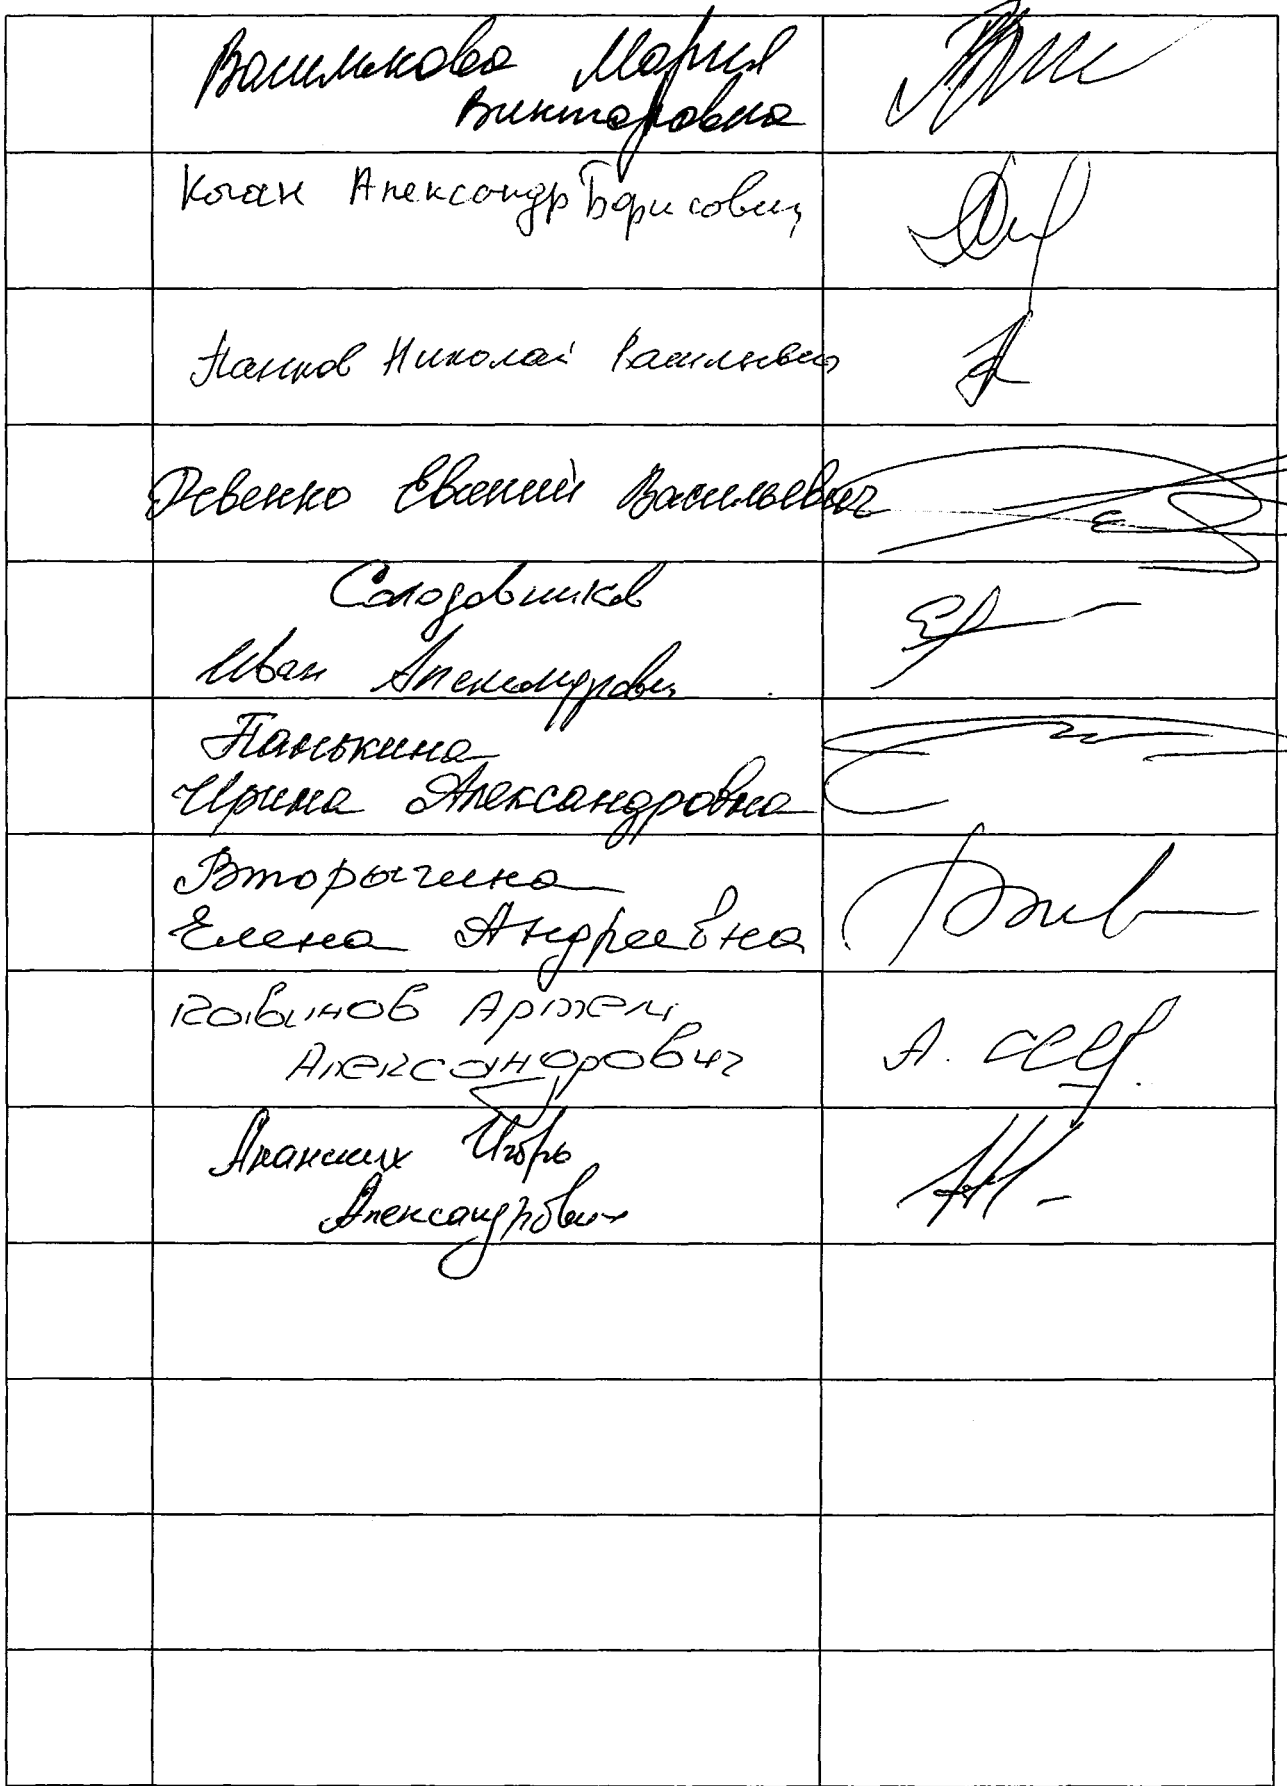 Василькова Мария
Викторовна
Коган Александр Борисович
Панков Николай Васильевич
Левенко Евгений Васильевич
Солодовников
Иван Александрович
Панькина
Ирина Александровна
Вторыгина
Елена Андреевна
Кавинов Артем
Александрович
Ананских Игорь
Александрович